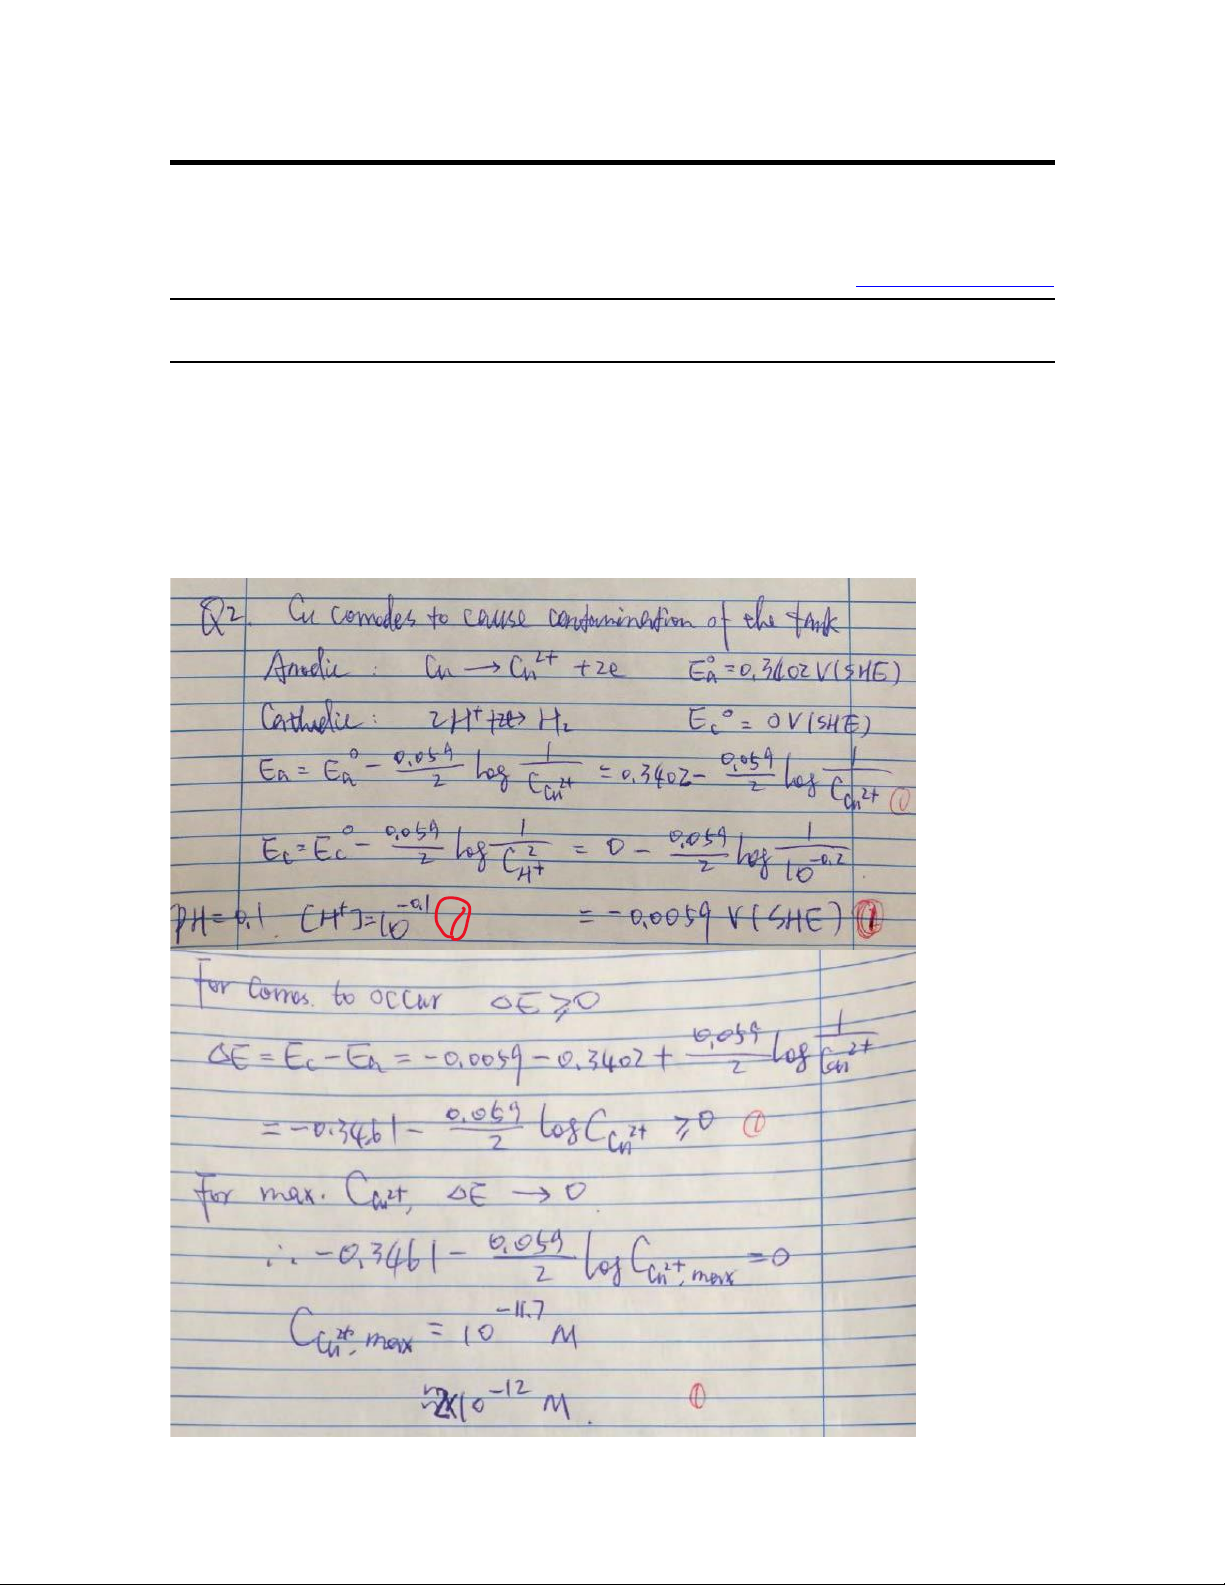 Q2. Cu corrodes to cause contamination of the tank
Anodic : Cu → Cu²⁺ + 2e Eₐ° = 0.3402 V (SHE)
Cathodic : 2H⁺ + 2e → H₂ E_c° = 0 V (SHE)
Eₐ = Eₐ° - 0.059/2 log 1/C_Cu²⁺ = 0.3402 - 0.059/2 log 1/C_Cu²⁺ ①
E_c = E_c° - 0.059/2 log 1/C²_H⁺ = 0 - 0.059/2 log 1/10^-0.2
PH = 0.1 [H⁺] = 10^-0.1 ① = -0.0059 V (SHE) ①
For corros. to occur ΔE ≥ 0
ΔE = E_c - Eₐ = -0.0059 - 0.3402 + 0.059/2 log 1/C_Cu²⁺
= -0.3461 - 0.059/2 log C_Cu²⁺ ≥ 0 ①
For max. C_Cu²⁺, ΔE → 0
∴ -0.3461 - 0.059/2 log C_Cu²⁺, max = 0
C_Cu²⁺, max = 10^-11.7 M
≈ 2×10^-12 M. ①